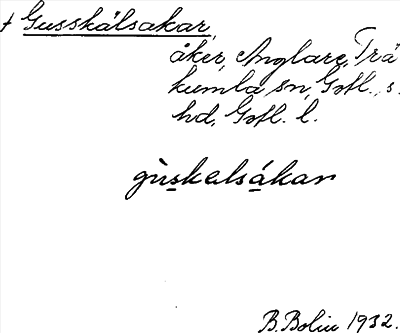 † Gusskälsakar,
åker, Anglare, Trä
kumla sn, Gotl., s.
hd, Gotl. l.
gùskelsákar
B. Bolin 1932.